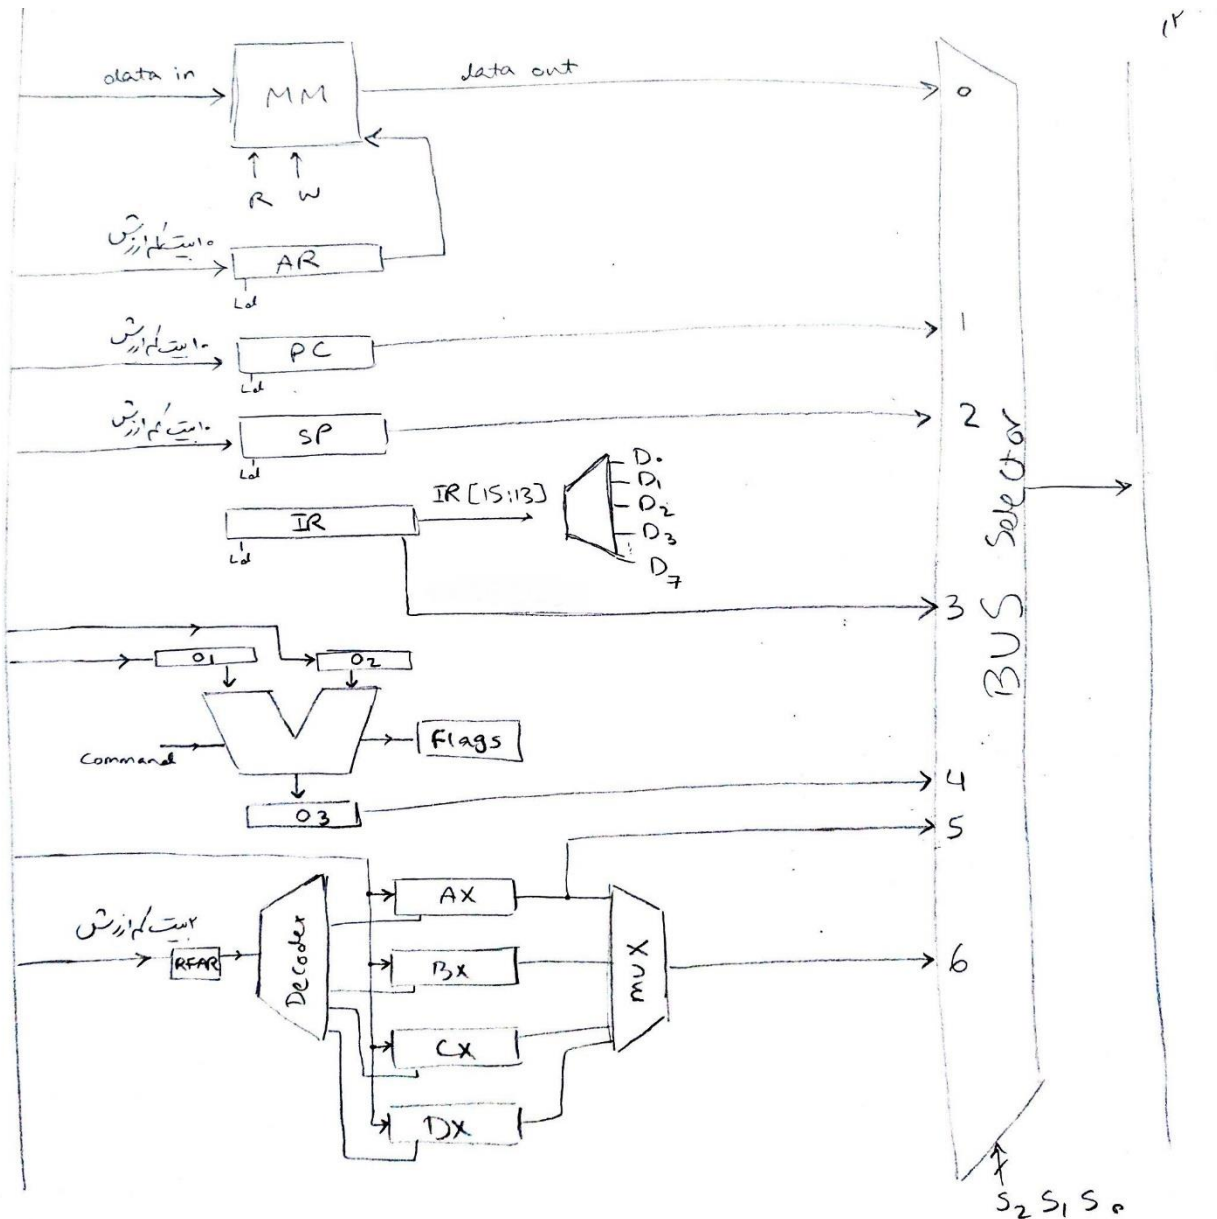 ۱۲
data in
MM
data out
0
R W
۱۰ بیت کم ارزش
AR
Ld
۱۰ بیت کم ارزش
PC
Ld
1
۱۰ بیت کم ارزش
SP
Ld
2
IR
Ld
IR [15:13]
D0
D1
D2
D3
D7
3
BUS Selector
O1
O2
Command
Flags
O3
4
5
۲ بیت کم ارزش
RFAR
Decoder
AX
BX
CX
DX
MUX
6
S2 S1 S0